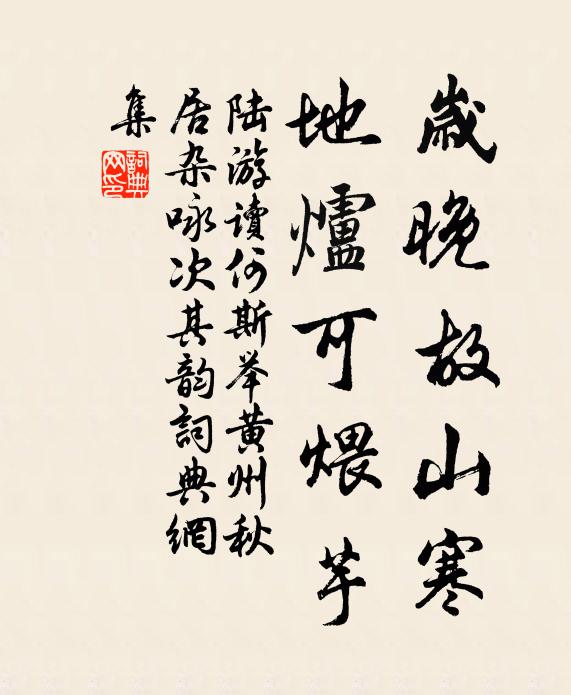 歲晚故山寒
地爐可煨芋
陆游讀何斯举黄州秋
居杂咏次其韵詞典網
集
詞典網印